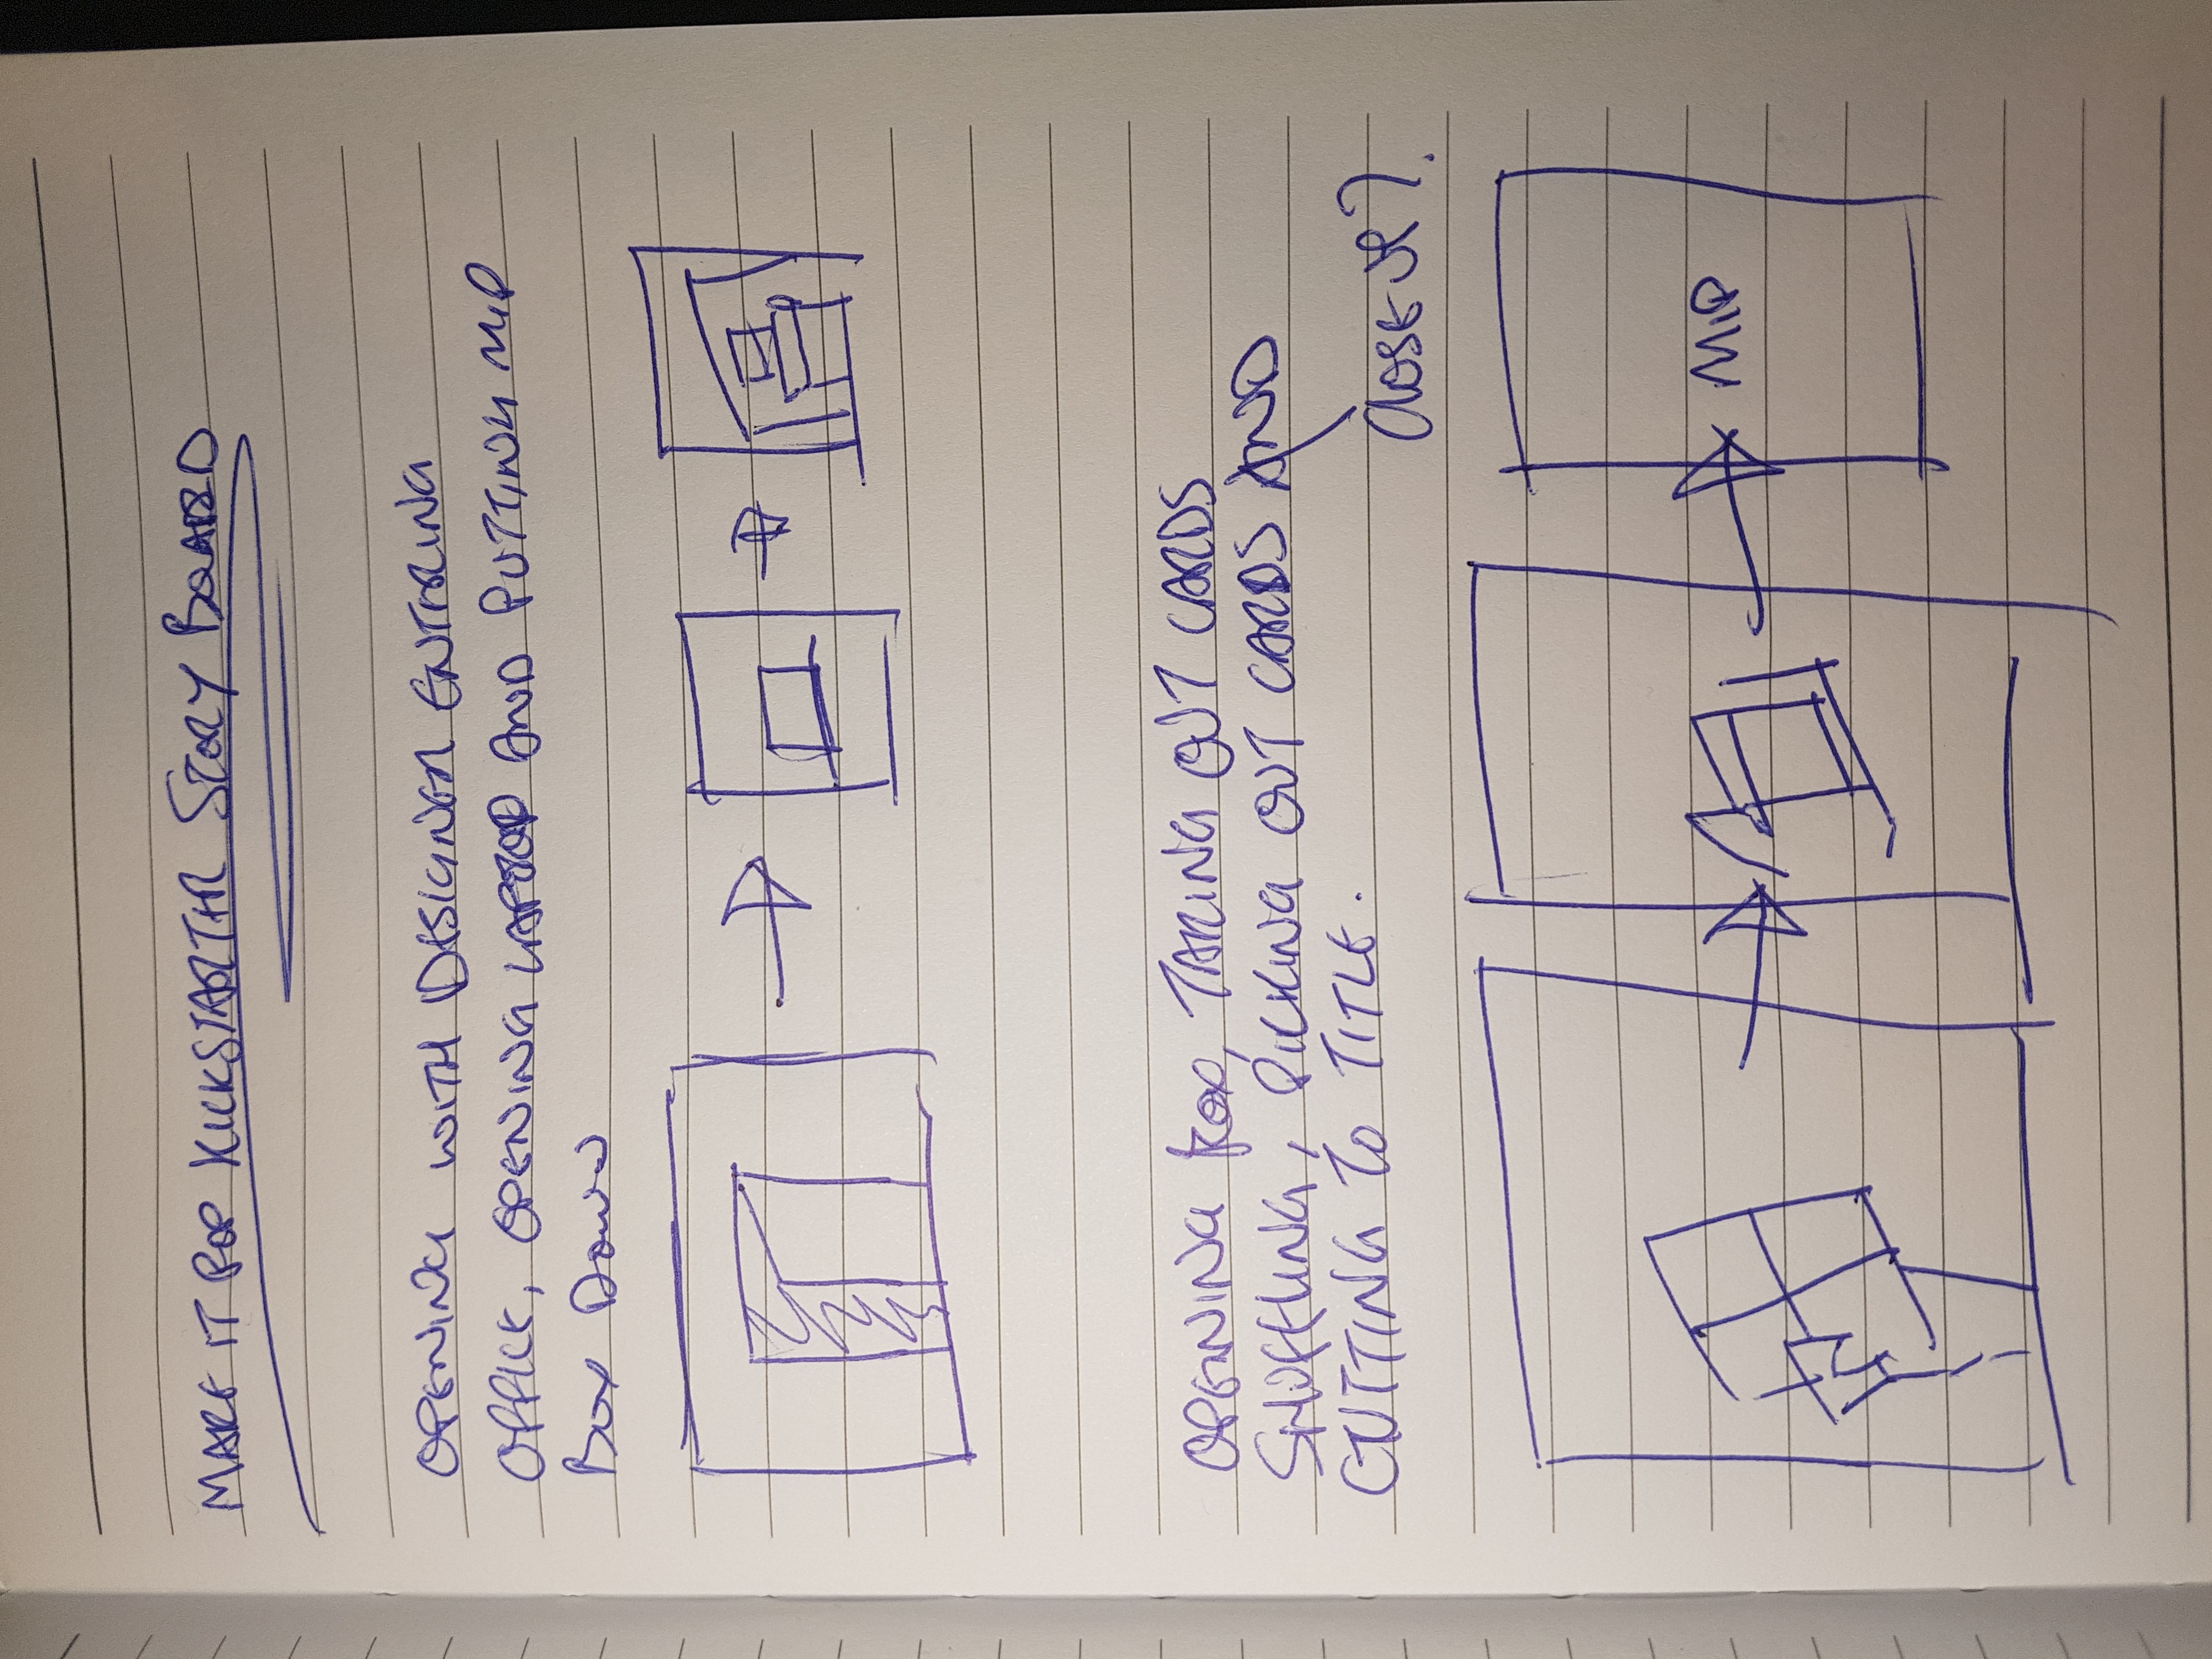 MAKE IT POP KICKSTARTER STORY BOARD
OPENING WITH DESIGNER ENTERING
OFFICE, OPENING LAPTOP AND PUTTING MIP
BOX DOWN
OPENING BOX, TAKING OUT CARDS
SHUFFLING, PICKING OUT CARDS AND
CUTTING TO TITLE.
CLOSE UP?.
MIP